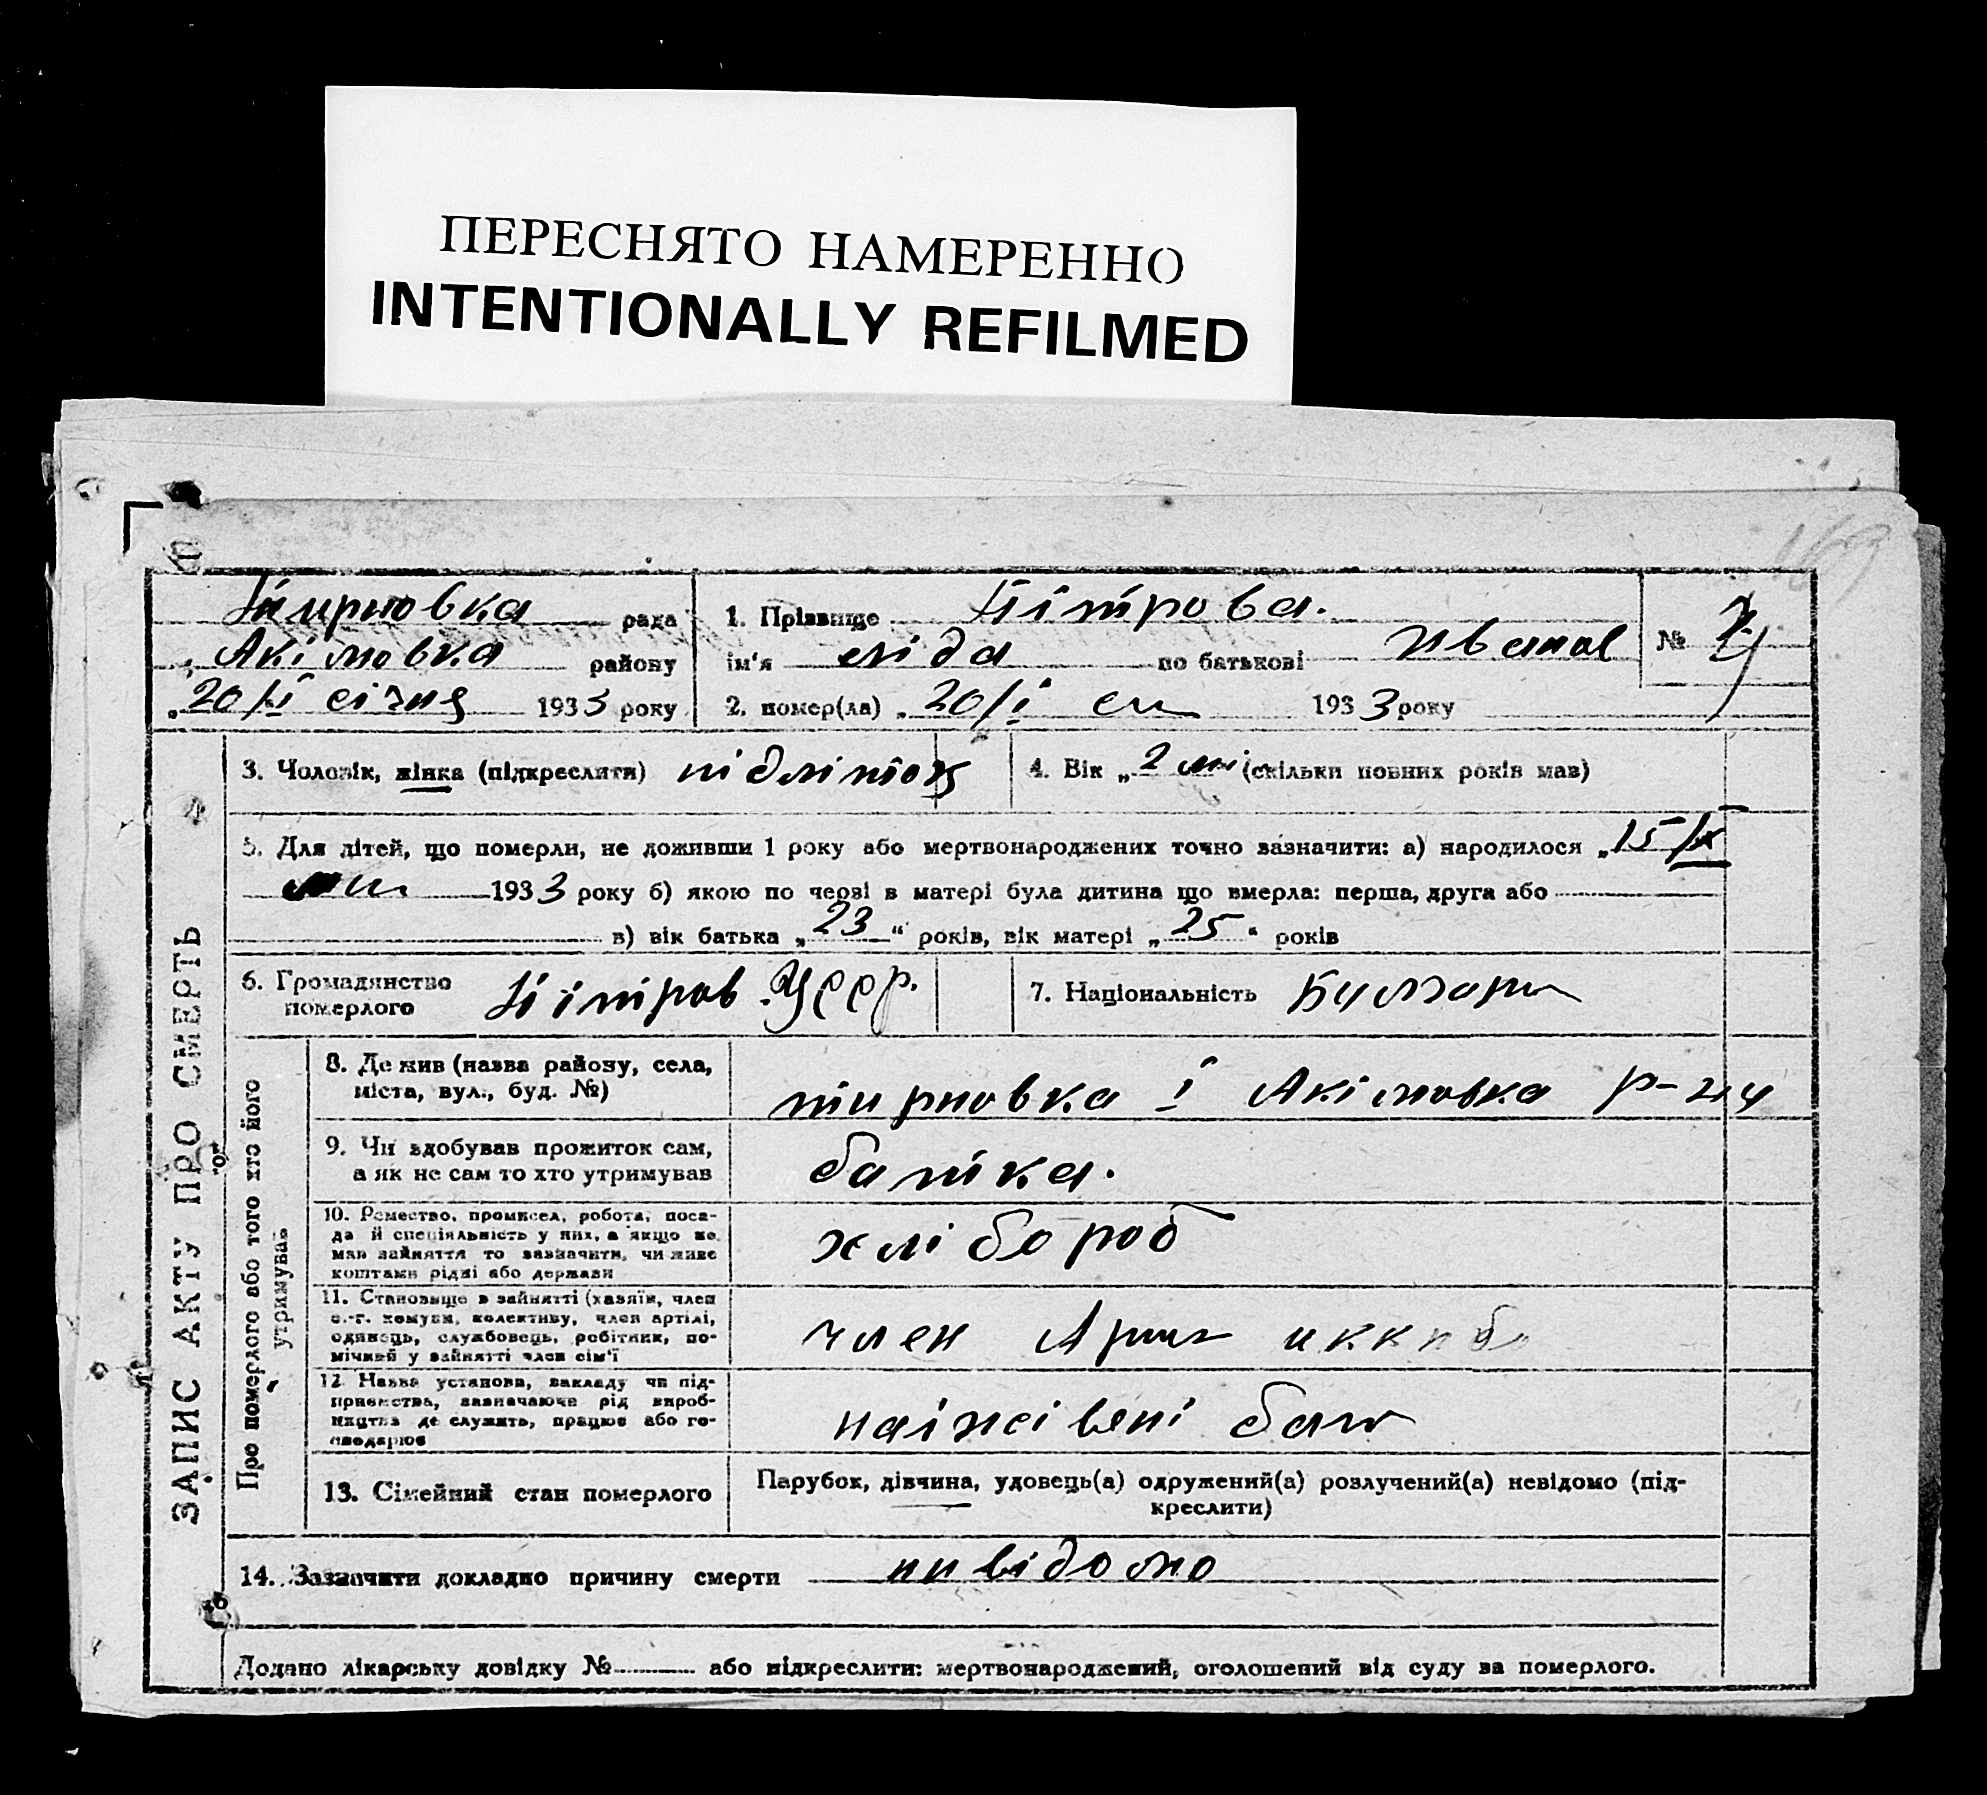 ПЕРЕСНЯТО НАМЕРЕННО
INTENTIONALLY REFILMED
169
рада
Акімовка району
„20/I січня 1933 року
1. Прізвище Пітрова.
ім'я Ліда по батькові Иванов
2. помер(ла) „20/I 1933 року
№
ЗАПИС АКТУ ПРО СМЕРТЬ
3. Чоловік, жінка (підкреслити) підліток
4. Вік „2 (скільки повних років мав)
5. Для дітей, що померли, не доживши 1 року або мертвонароджених точно зазначити: а) народилося „15/IX
1933 року б) якою по черзі в матері була дитина що вмерла: перша, друга або
в) вік батька „23“ років, вік матері „25“ років
6. Громадянство
померлого
Пітров Усср.
7. Національність
Про померлого або того хто його
утримував
8. Де жив (назва району, села,
міста, вул., буд. №)
тирновка I Акімовка р-ну
9. Чи здобував прожиток сам,
а як не сам то хто утримував
батка.
10. Ремество, промисел, робота, поса-
да й спеціяльність у них, а якщо не
мав зайняття то зазначити, чи живе
коштами рідні або держави
хлібороб
11. Становище в зайнятті (хазяїн, член
с.-г. комуни, колективу, член артілі,
одинець, службовець, робітник, по-
мічний у зайнятті член сім'ї
член
12. Назва установи, закладу чи під-
приємства, зазначаючи рід вироб-
ництва де служить, працює або го-
сподарює
13. Сімейний стан померлого
Парубок, дівчина, удовець(а) одружений(а) розлучений(а) невідомо (під-
креслити)
14. Зазначити докладно причину смерти нивідомо
Додано лікарську довідку № або підкреслити: мертвонароджений, оголошений від суду за померлого.